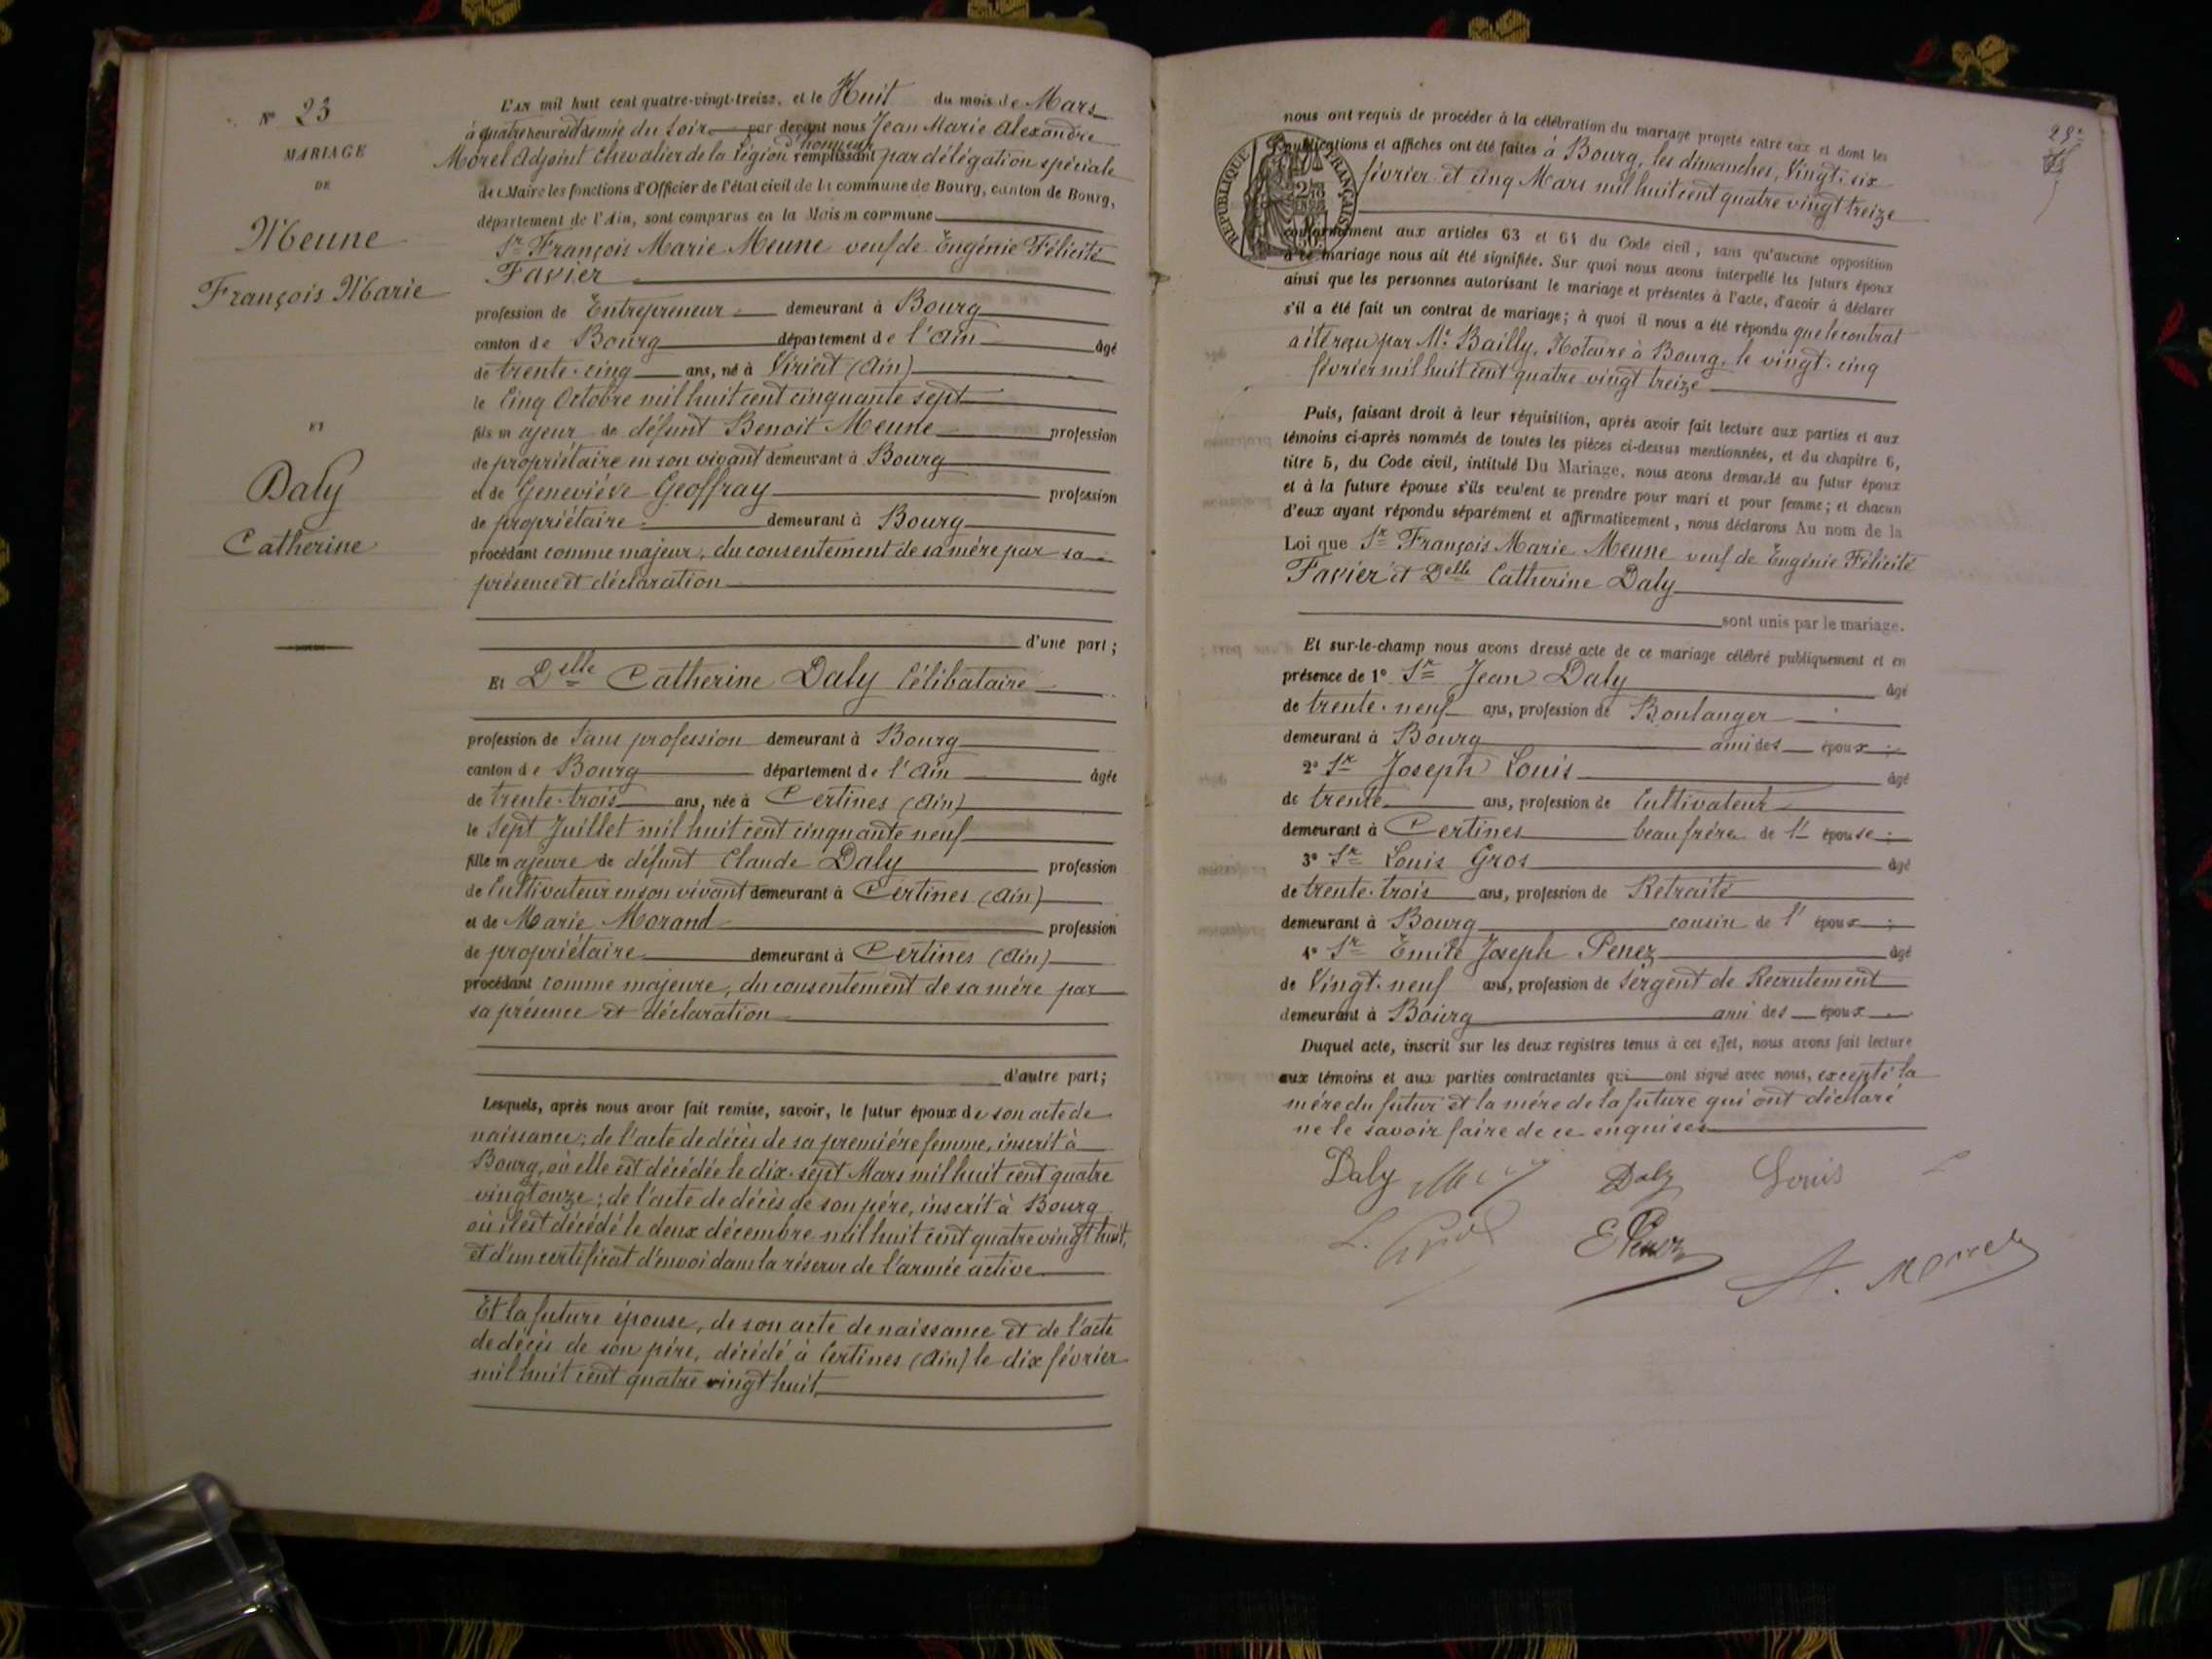 N° 23
MARIAGE
DE
Meune
François Marie
ET
Daly
Catherine
L'AN mil huit cent quatre-vingt-treize, et le Huit du mois de Mars
à quatre heures et demie du soir par devant nous Jean Marie Alexandre
Morel Adjoint Chevalier de la légion d'honneur remplissant par délégation spéciale
du Maire les fonctions d'Officier de l'état civil de la commune de Bourg, canton de Bourg,
département de l'Ain, sont comparus en la Maison commune
Sr François Marie Meune veuf de Eugénie Félicité
Favier
profession de Entrepreneur demeurant à Bourg
canton de Bourg département de l'Ain âgé
de trente-cinq ans, né à Viriat (Ain)
le Cinq Octobre mil huit cent cinquante sept
fils majeur de défunt Benoit Meune profession
de propriétaire en son vivant demeurant à Bourg
et de Geneviève Geoffray profession
de propriétaire demeurant à Bourg
procédant comme majeur, du consentement de sa mère par sa
présence et déclaration
d'une part;
Et Delle Catherine Daly Célibataire
profession de Sans profession demeurant à Bourg
canton de Bourg département de l'Ain âgée
de trente-trois ans, née à Certines (Ain)
le Sept Juillet mil huit cent cinquante neuf
fille majeure de défunt Claude Daly profession
de Cultivateur en son vivant demeurant à Certines (Ain)
et de Marie Morand profession
de propriétaire demeurant à Certines (Ain)
procédant comme majeure, du consentement de sa mère par
sa présence et déclaration
d'autre part;
Lesquels, après nous avoir fait remise, savoir, le futur époux de son acte de
naissance; de l'acte de décès de sa première femme, inscrit à
Bourg, où elle est décédée le dix-sept Mars mil huit cent quatre
vingt onze; de l'acte de décès de son père, inscrit à Bourg
où il est décédé le deux décembre mil huit cent quatre vingt huit,
et d'un certificat d'envoi dans la réserve de l'armée active
Et la future épouse, de son acte de naissance et de l'acte
de décès de son père, décédé à Certines (Ain) le dix février
mil huit cent quatre vingt huit
nous ont requis de procéder à la célébration du mariage projeté entre eux et dont les
publications et affiches ont été faites à Bourg, les dimanches, Vingt-six
février et cinq Mars mil huit cent quatre vingt treize
RÉPUBLIQUE FRANÇAISE
conformément aux articles 63 et 64 du Code civil, sans qu'aucune opposition
à ce mariage nous ait été signifiée. Sur quoi nous avons interpellé les futurs époux
ainsi que les personnes autorisant le mariage et présentes à l'acte, d'avoir à déclarer
s'il a été fait un contrat de mariage; à quoi il nous a été répondu que le contrat
a été reçu par Me Bailly, Notaire à Bourg, le vingt-cinq
février mil huit cent quatre vingt treize
Puis, faisant droit à leur réquisition, après avoir fait lecture aux parties et aux
témoins ci-après nommés de toutes les pièces ci-dessus mentionnées, et du chapitre 6,
titre 5, du Code civil, intitulé Du Mariage, nous avons demandé au futur époux
et à la future épouse s'ils veulent se prendre pour mari et pour femme; et chacun
d'eux ayant répondu séparément et affirmativement, nous déclarons Au nom de la
Loi que Sr François Marie Meune veuf de Eugénie Félicité
Favier et Delle Catherine Daly
sont unis par le mariage.
Et sur-le-champ nous avons dressé acte de ce mariage célébré publiquement et en
présence de 1° Sr Jean Daly âgé
de trente-neuf ans, profession de Boulanger
demeurant à Bourg ami des époux;
2° Sr Joseph Louis âgé
de trente ans, profession de Cultivateur
demeurant à Certines beau frère de l' épouse;
3° Sr Louis Gros âgé
de trente-trois ans, profession de Retraité
demeurant à Bourg cousin de l' époux;
4° Sr Emile Joseph Penez âgé
de Vingt-neuf ans, profession de Sergent de Recrutement
demeurant à Bourg ami des époux
Duquel acte, inscrit sur les deux registres tenus à cet effet, nous avons fait lecture
aux témoins et aux parties contractantes qui ont signé avec nous, excepté la
mère du futur et la mère de la future qui ont déclaré
ne le savoir faire de ce enquises
Daly Daly Louis
L. Gros E Penez A. Morel